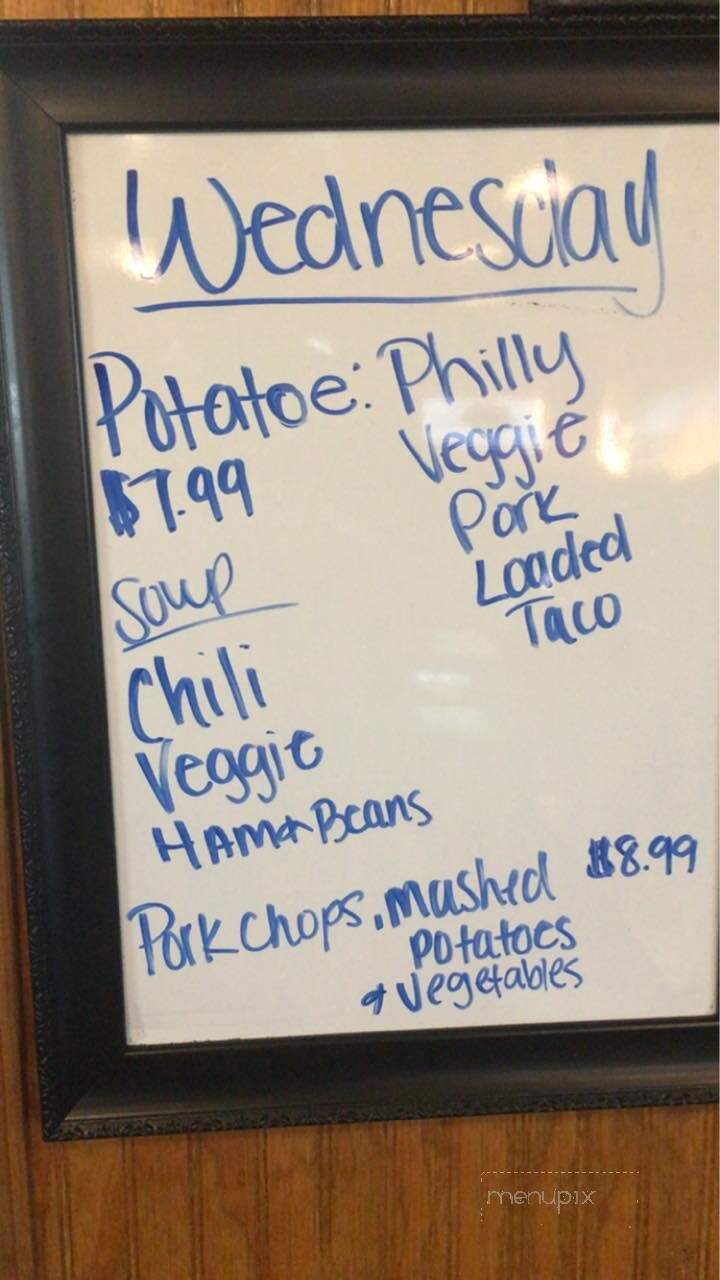 Wednesday
Potatoe: Philly
$7.99
Veggie
Pork
Loaded
Taco
Soup
Chili
Veggie
HAM & Beans
Pork chops, mashed $8.99
potatoes
& vegetables
menupix